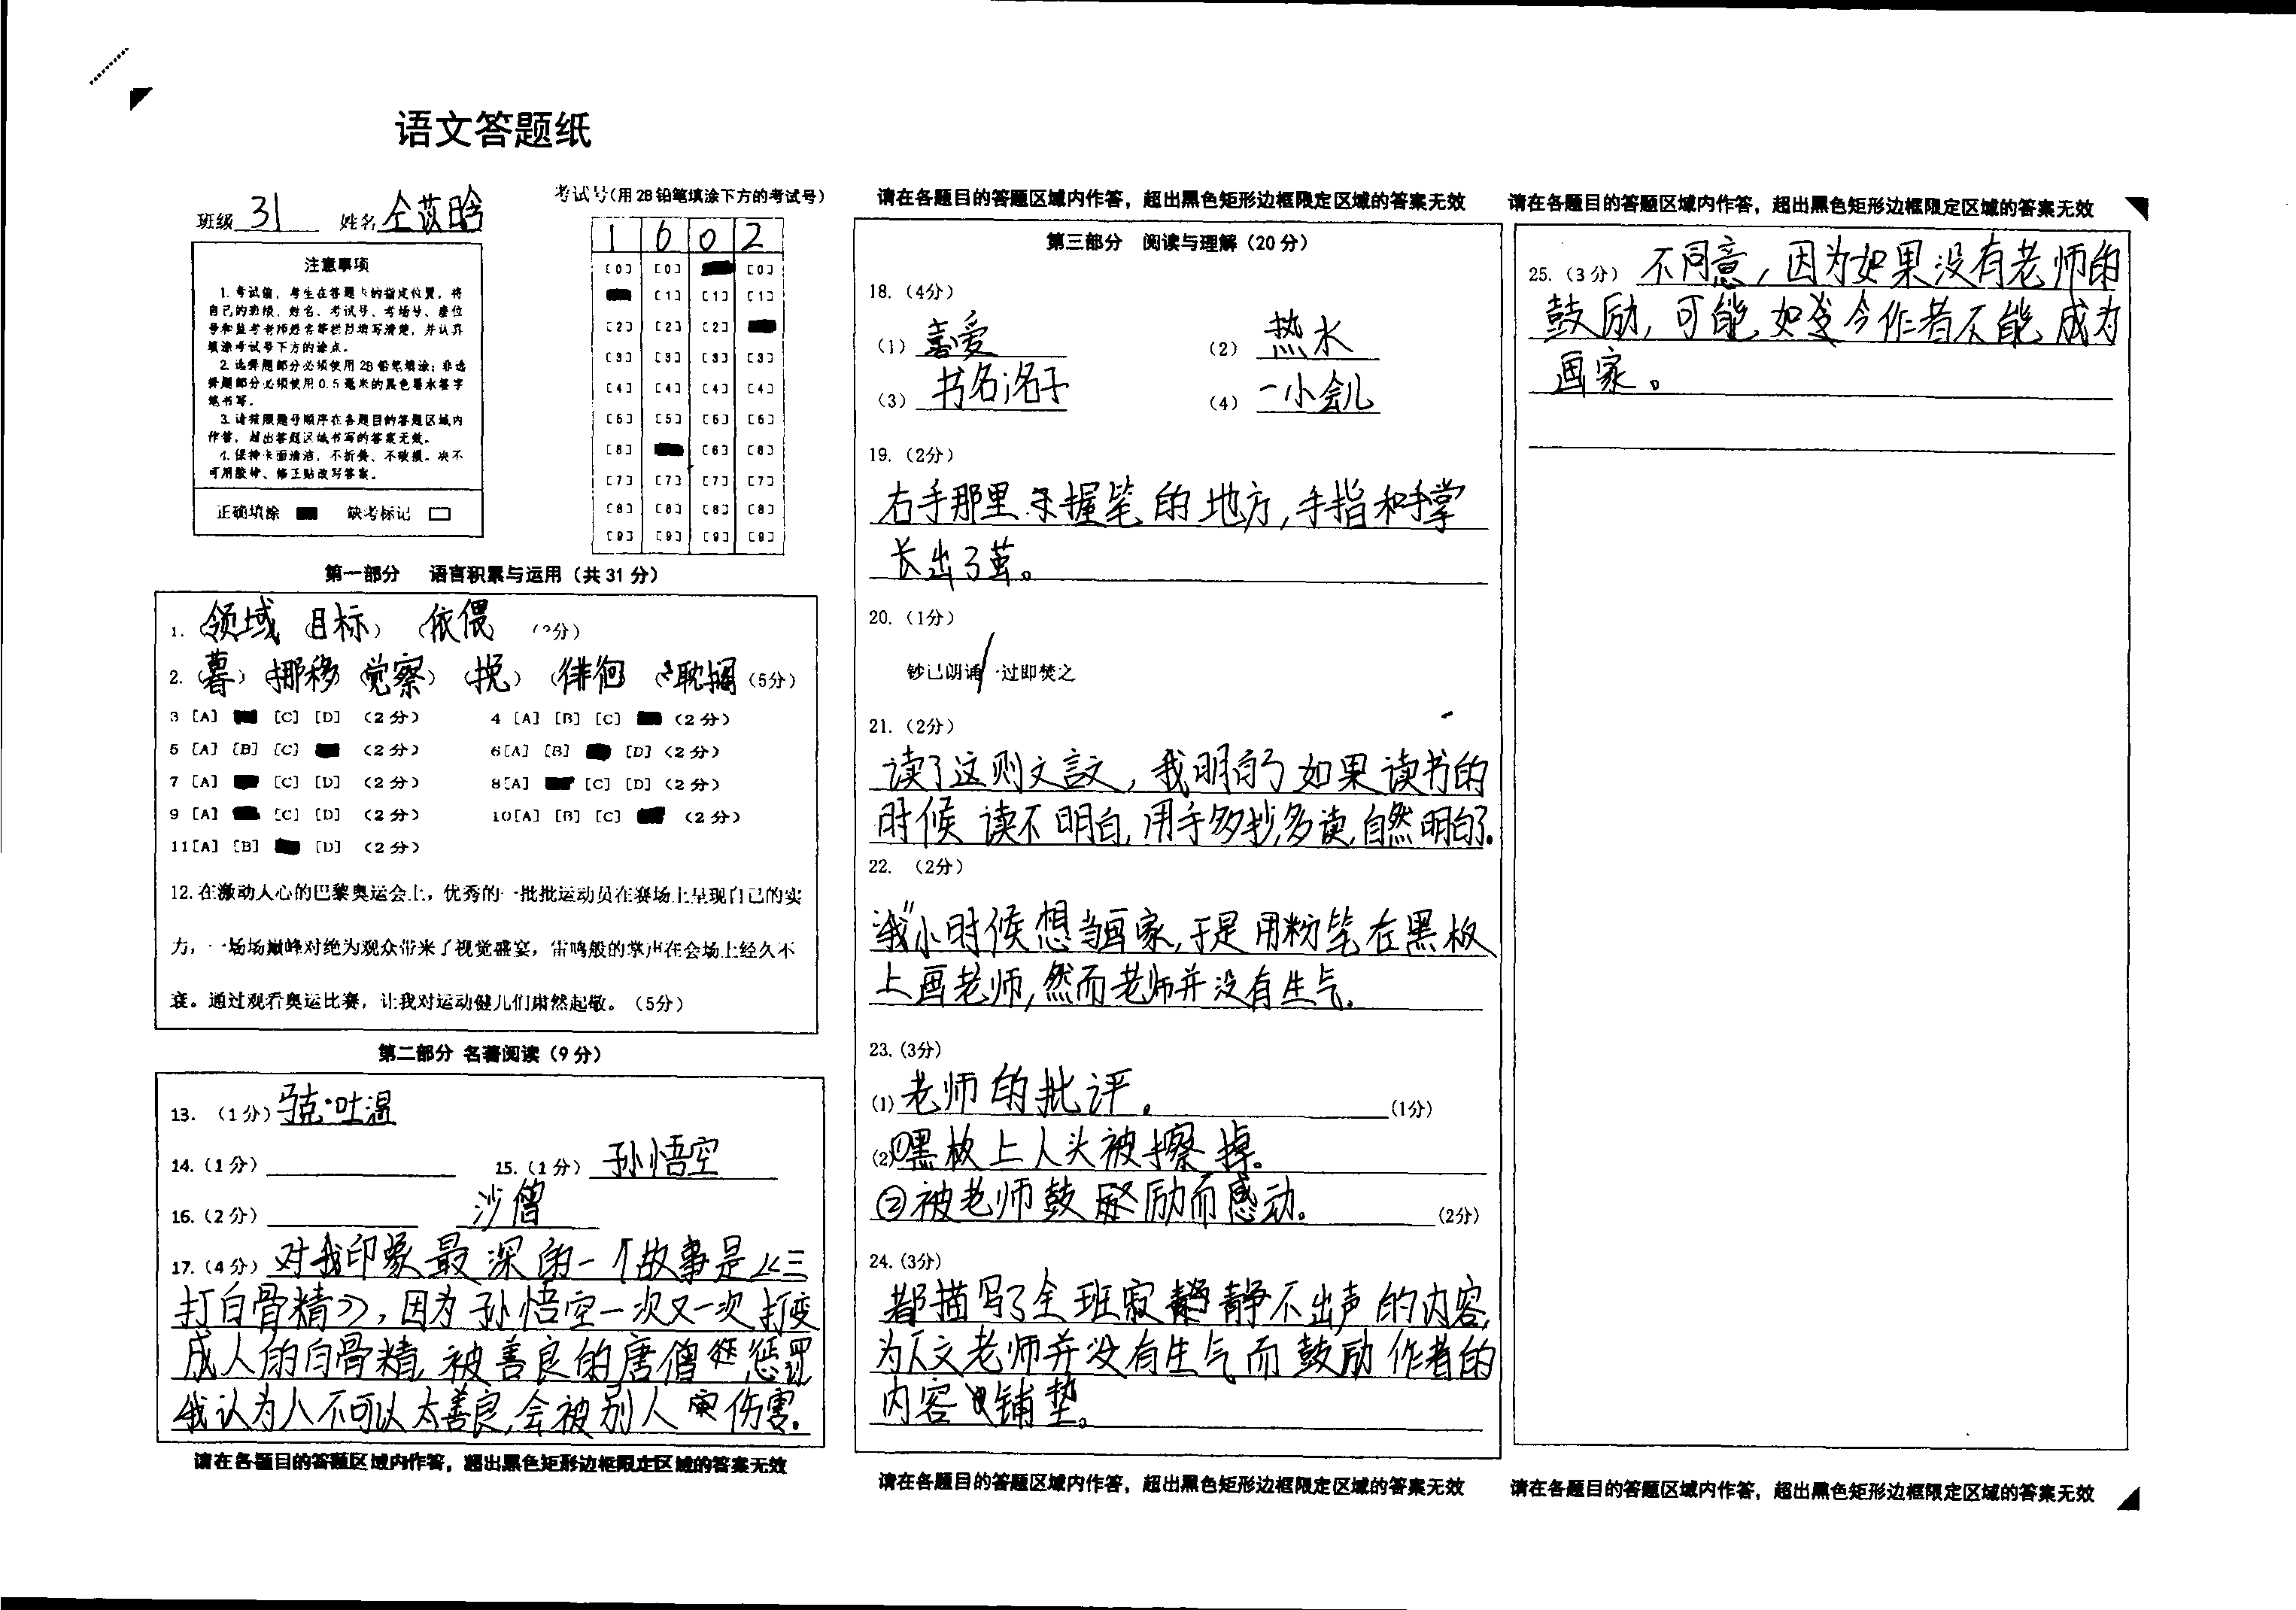 语文答题纸
班级 31 姓名 仝苡晗
考试号(用2B铅笔填涂下方的考试号)
1 6 0 2
注意事项
1. 考试前,考生在答题卡的指定位置,将
自己的班级、姓名、考试号、考场号、座位
号和监考老师姓名等栏目填写清楚,并认真
填涂考试号下方的涂点。
2. 选择题部分必须使用2B铅笔填涂;非选
择题部分必须使用0.5毫米的黑色墨水签字
笔书写。
3. 请按照题号顺序在各题目的答题区域内
作答,超出答题区域书写的答案无效。
4. 保持卡面清洁,不折叠、不破损。决不
可用胶带、修正贴改写答案。
正确填涂 缺考标记
[0] [0] [0]
[1] [1] [1]
[2] [2] [2]
[3] [3] [3] [3]
[4] [4] [4] [4]
[5] [5] [5] [5]
[6] [6] [6]
[7] [7] [7] [7]
[8] [8] [8] [8]
[9] [9] [9] [9]
第一部分 语言积累与运用(共31分)
1. (领域 目标) (依偎 分)
2. (暮) (挪移 觉察) (挽) (徘徊 耽搁 (5分)
3 [A] [C] [D] (2分) 4 [A] [B] [C] (2分)
5 [A] [B] [C] (2分) 6[A] [B] [D] (2分)
7 [A] [C] [D] (2分) 8[A] [C] [D] (2分)
9 [A] [C] [D] (2分) 10[A] [B] [C] (2分)
11[A] [B] [D] (2分)
12. 在激动人心的巴黎奥运会上,优秀的一批批运动员在赛场上呈现自己的实
力,一场场巅峰对绝为观众带来了视觉盛宴,雷鸣般的掌声在会场上经久不
衰。通过观看奥运比赛,让我对运动健儿们肃然起敬。(5分)
第二部分 名著阅读(9分)
13. (1分) 马克·吐温
14. (1分) 15. (1分) 孙悟空
16. (2分) 沙僧
17. (4分) 对我印象最深的一个故事是《三
打白骨精》,因为孙悟空一次又一次打变
成人的白骨精,被善良的唐僧惩罚
我认为人不可以太善良,会被别人伤害.
请在各题目的答题区域内作答,超出黑色矩形边框限定区域的答案无效
请在各题目的答题区域内作答,超出黑色矩形边框限定区域的答案无效
第三部分 阅读与理解(20分)
18. (4分)
(1) 喜爱 (2) 热水
(3) 书名 (4) 一小会儿
19. (2分)
右手那里握笔的地方,手指和手掌
长出了茧。
20. (1分)
钞已朗诵/一过即焚之
21. (2分)
读了这则文言文,我明白了如果读书的
时候读不明白,用手多抄,多读,自然明白了.
22. (2分)
“我”小时候想当画家,于是用粉笔在黑板
上画老师,然而老师并没有生气.
23. (3分)
(1) 老师的批评。 (1分)
(2) ①黑板上人头被擦掉。
②被老师鼓励而感动. (2分)
24. (3分)
都描写了全班寂静不出声的内容,
为下文老师并没有生气而鼓励作者的
内容铺垫。
请在各题目的答题区域内作答,超出黑色矩形边框限定区域的答案无效
请在各题目的答题区域内作答,超出黑色矩形边框限定区域的答案无效
25. (3分) 不同意,因为如果没有老师的
鼓励,可能如今作者不能成为
画家。
请在各题目的答题区域内作答,超出黑色矩形边框限定区域的答案无效